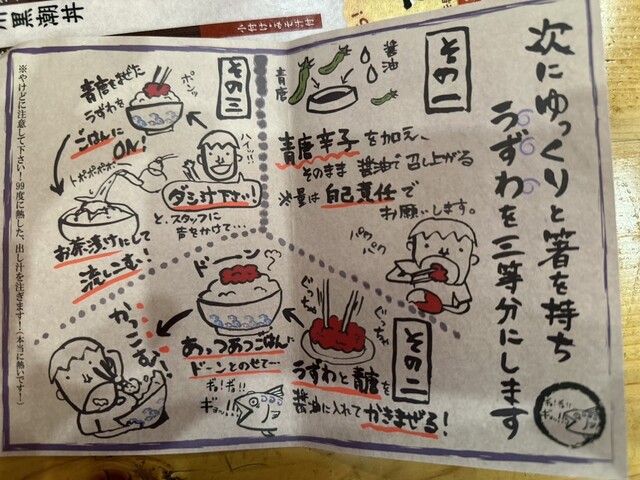 次にゆっくりと箸を持ち
うずわを三等分にします
その一
醤油
青唐
青唐辛子を加え、
そのまま醤油で召し上がる
※量は自己責任で
お願いします。
パク
パク
その二
ぐっちゃ
ぐっちゃ
うずわと青唐を
醤油に入れてかきまぜる!
ドーン
あっつあつごはんに
ドーンとのせて…
ギョ!ギョ!!
ギョッ!!
かっこむ!
その三
ポンッ
青唐をまぜた
うずわを
ごはんに
ON!
ハイッ!!
ダシ汁下さい!
と、スタッフに
声をかけて…
トポポポポ
お茶漬けにして
流しこむ!
※やけどに注意して下さい!99度に熱した、出し汁を注ぎます!(本当に熱いです!)
黒潮丼